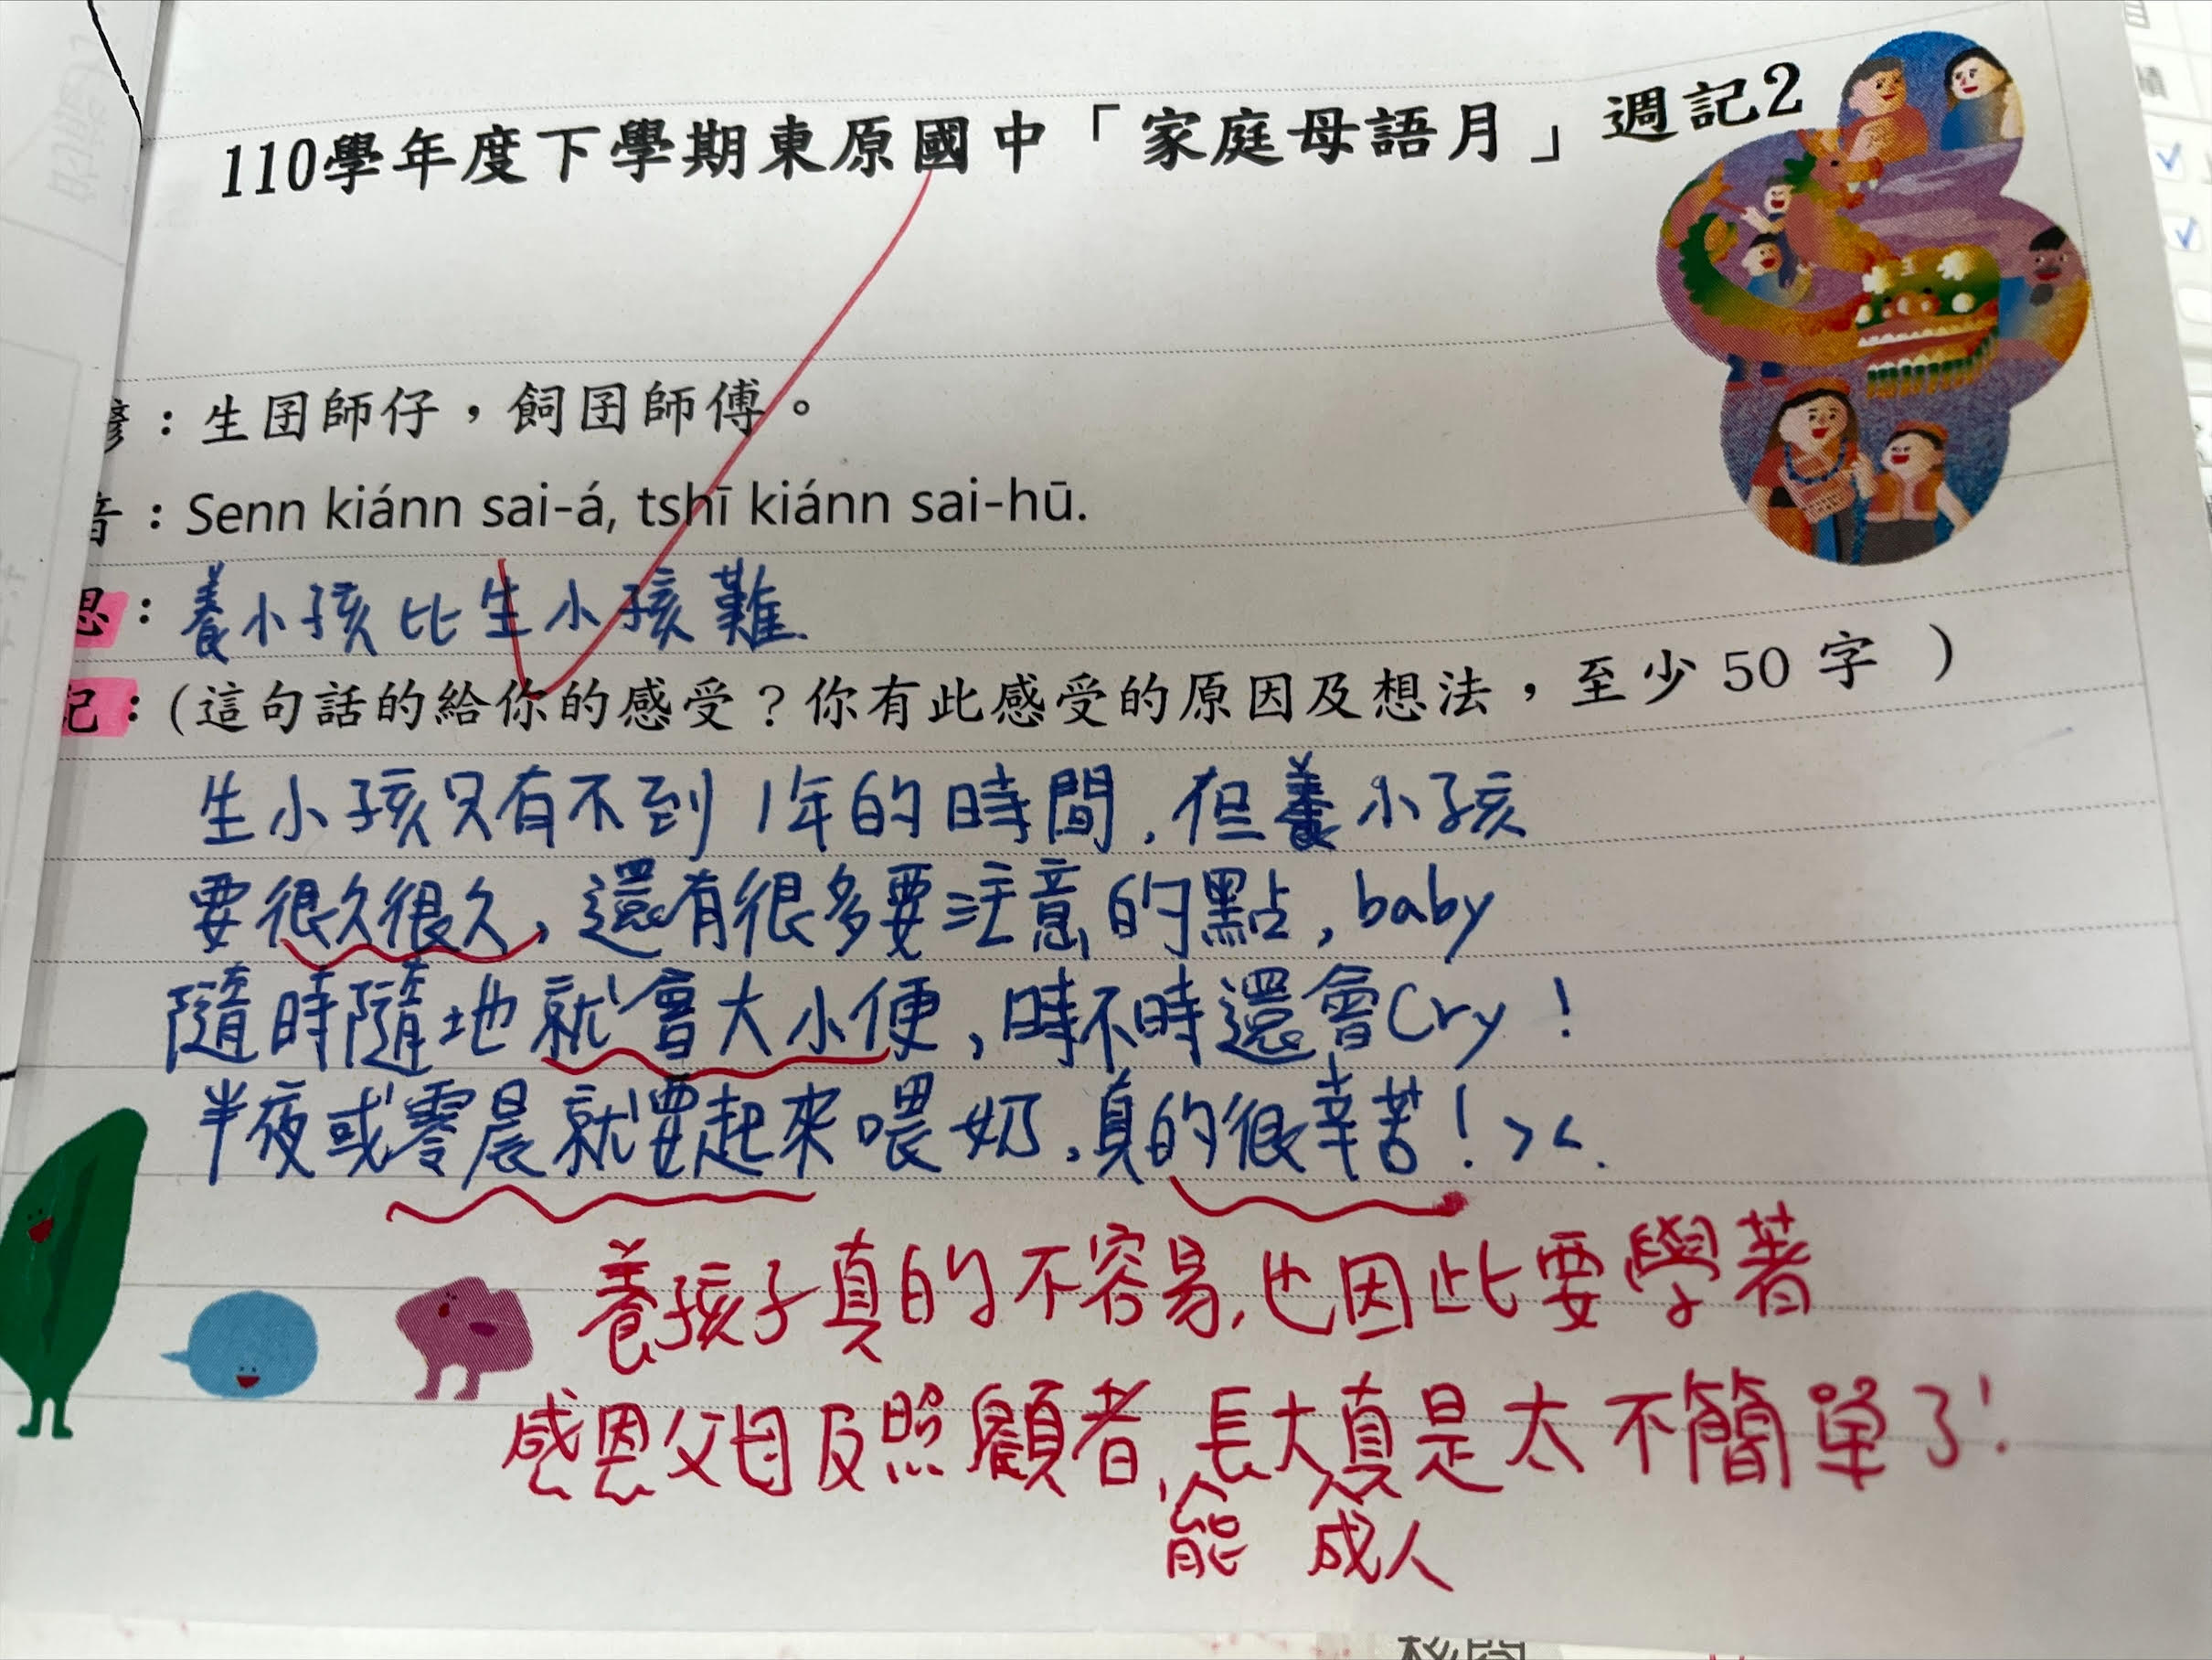 110學年度下學期東原國中「家庭母語月」週記2
諺：生囝師仔，飼囝師傅。
音：Senn kiánn sai-á, tshī kiánn sai-hū.
思：養小孩比生小孩難.
記：(這句話的給你的感受？你有此感受的原因及想法，至少 50 字 )
生小孩只有不到1年的時間，但養小孩
要很久很久，還有很多要注意的點，baby
隨時隨地就會大小便，時不時還會Cry！
半夜或零晨就要起來喂奶，真的很辛苦！><.
養孩子真的不容易，也因此要學著
感恩父母及照顧者，能長大成人真是太不簡單了！